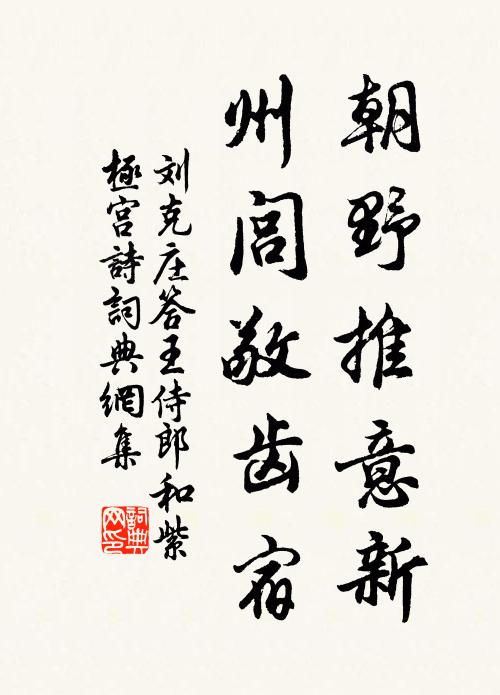 朝野推意新
州閭敬齿宿
刘克庄答王侍郎和紫
極宫詩詞典網集
詞典
网印